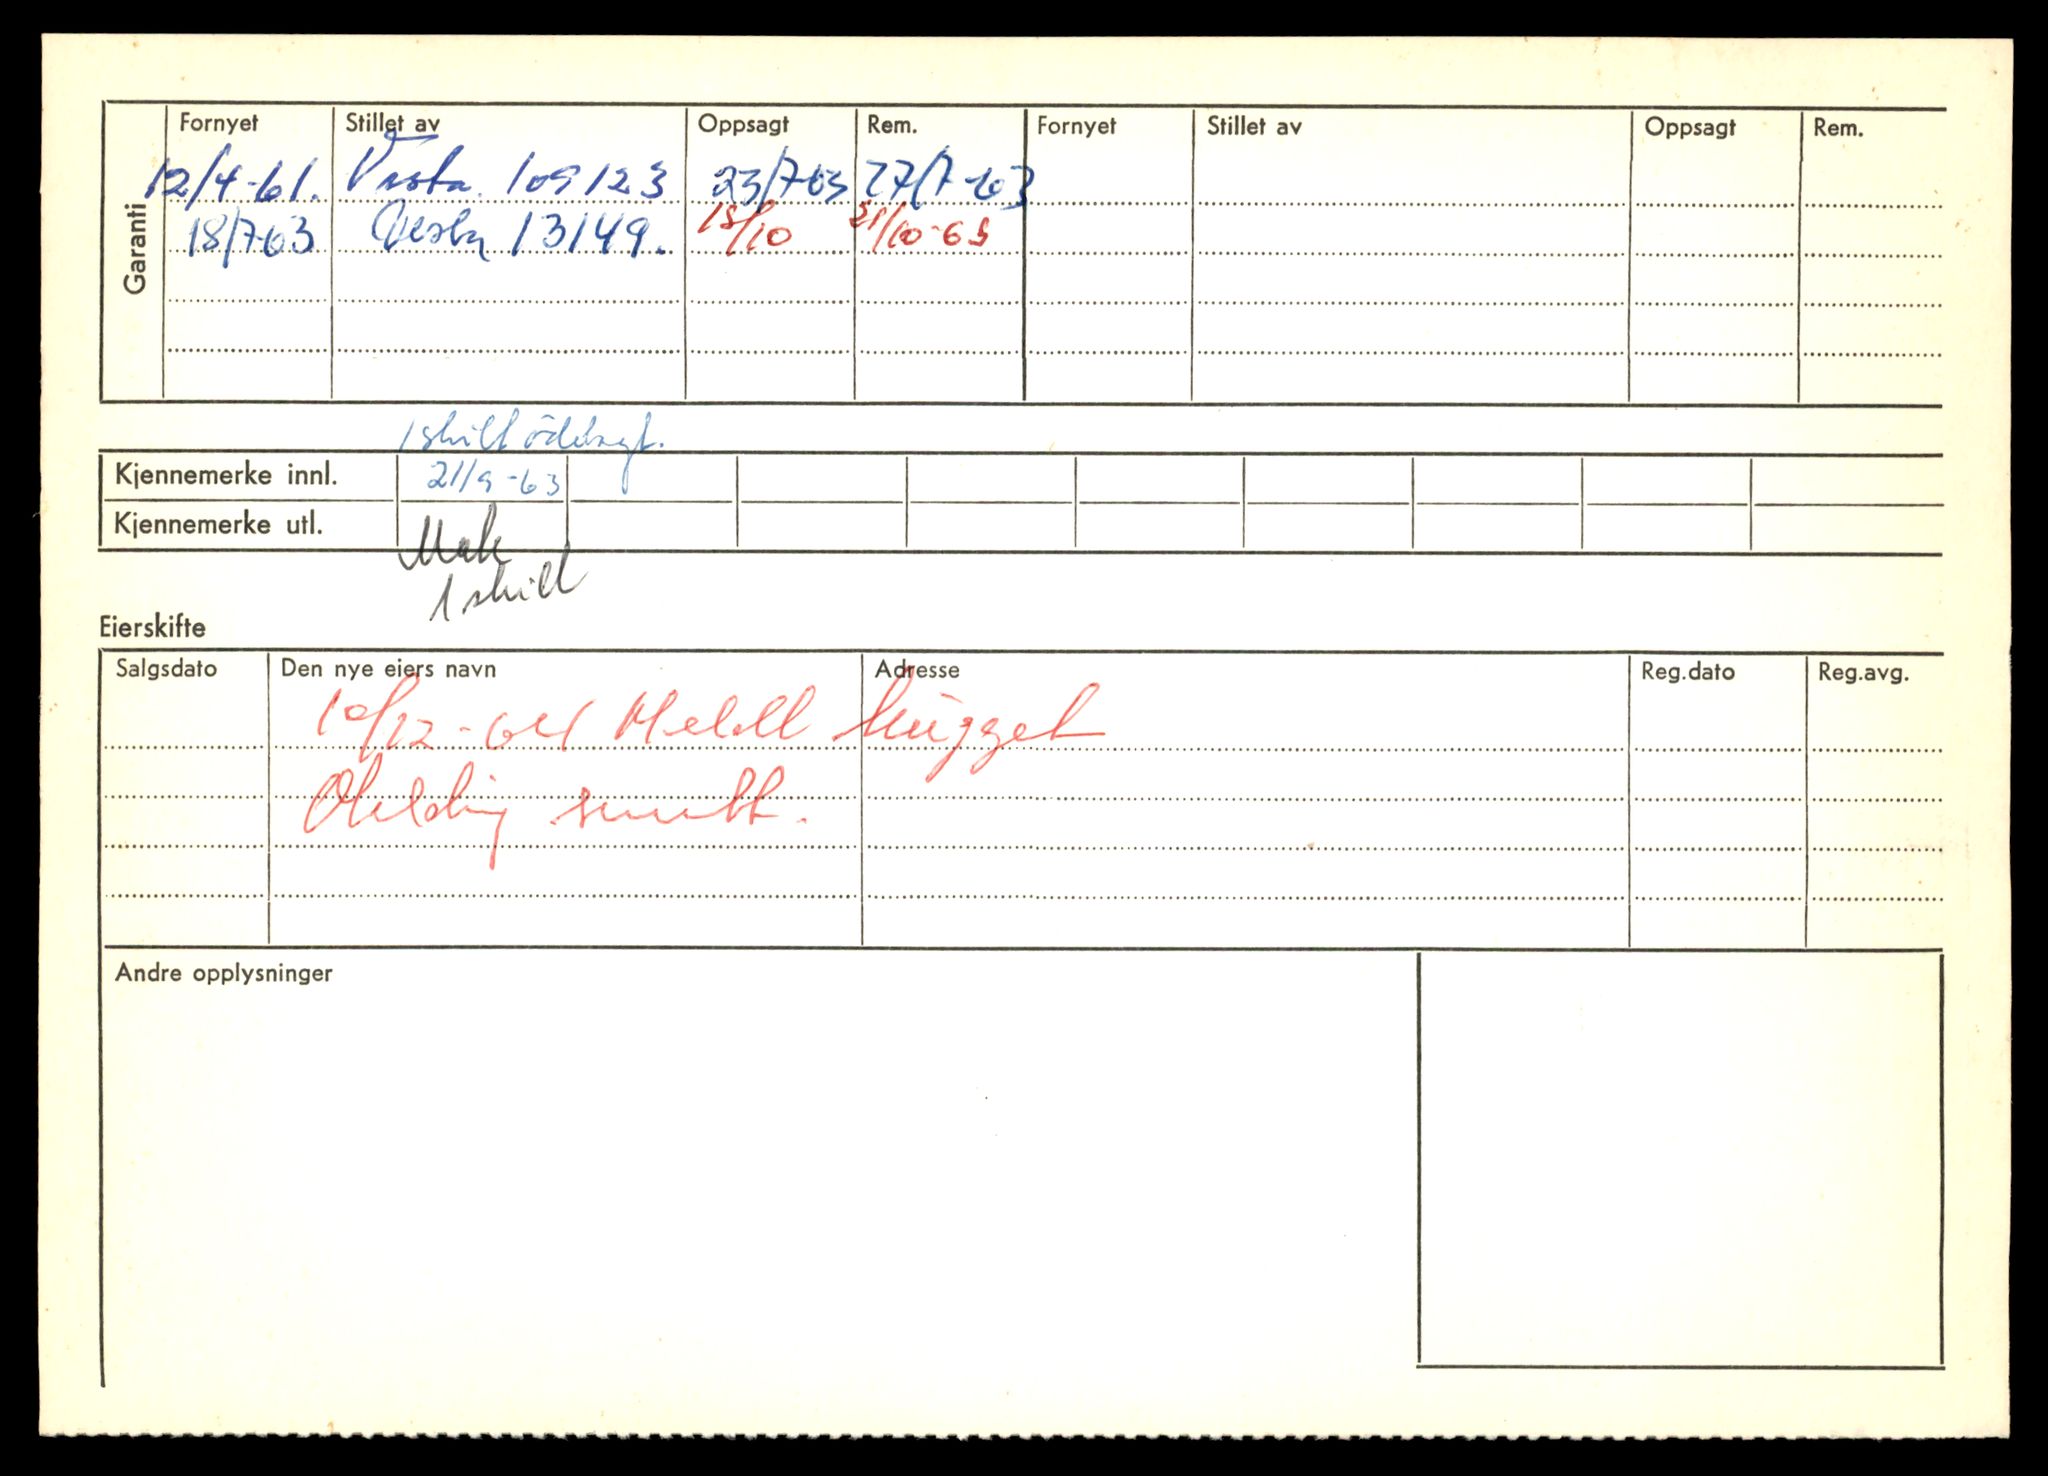 Garanti
Fornyet Stillet av Oppsagt Rem. Fornyet Stillet av Oppsagt Rem.
12/4-61. Vesta. 109123 23/7-63 27/7-63
18/7-63 Vesta 13149. 18/10 21/10-63
1 skilt ödelagt.
Kjennemerke innl. 21/9-63
Kjennemerke utl.
Mak
1 skilt
Eierskifte
Salgsdato Den nye eiers navn Adresse Reg.dato Reg.avg.
10/12-64 Meldt hugget
Melding sendt.
Andre opplysninger